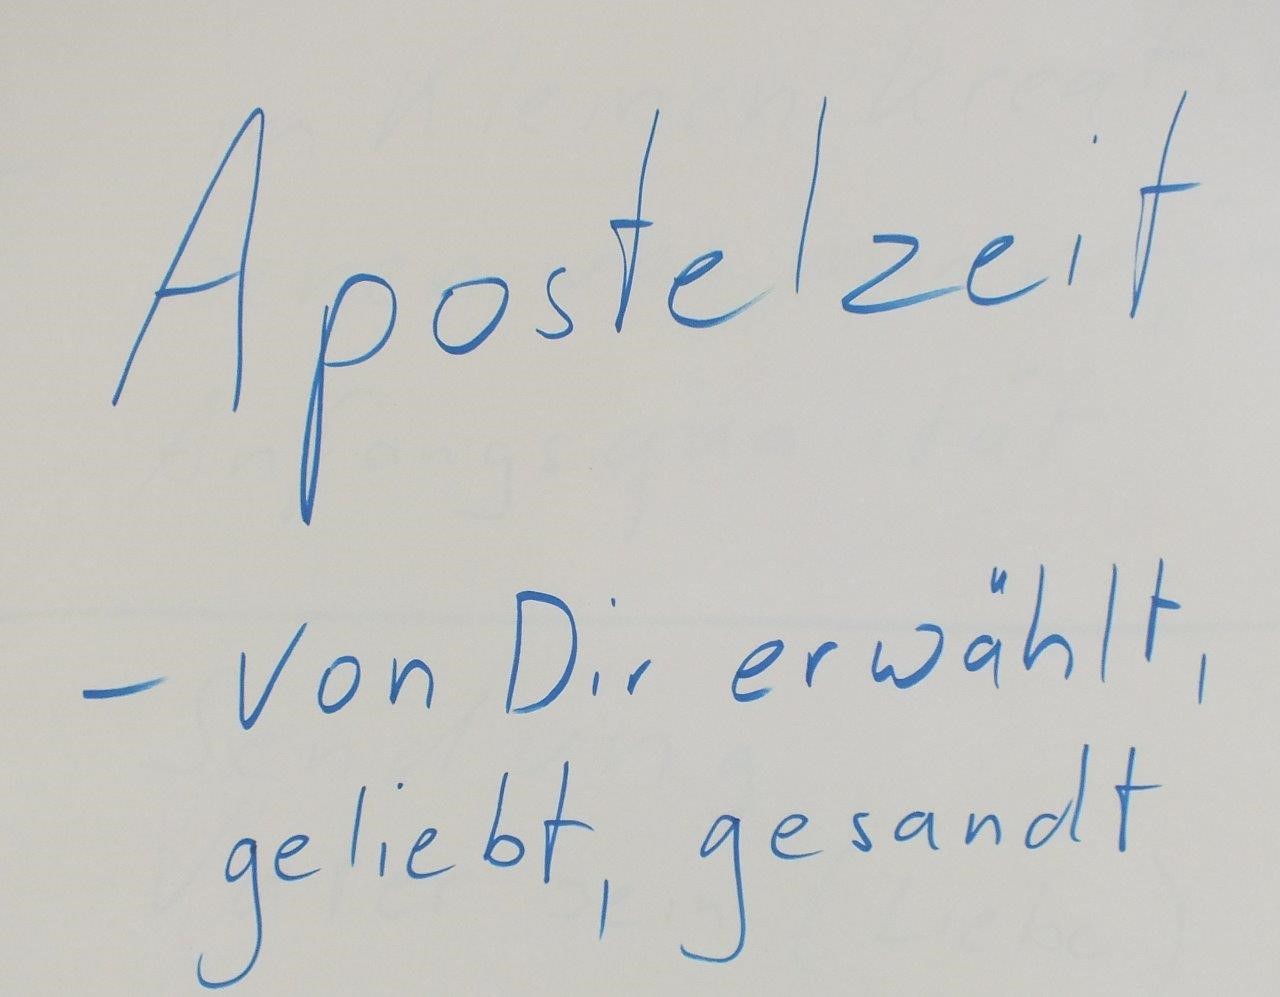 Apostelzeit
- von Dir erwählt,
geliebt, gesandt